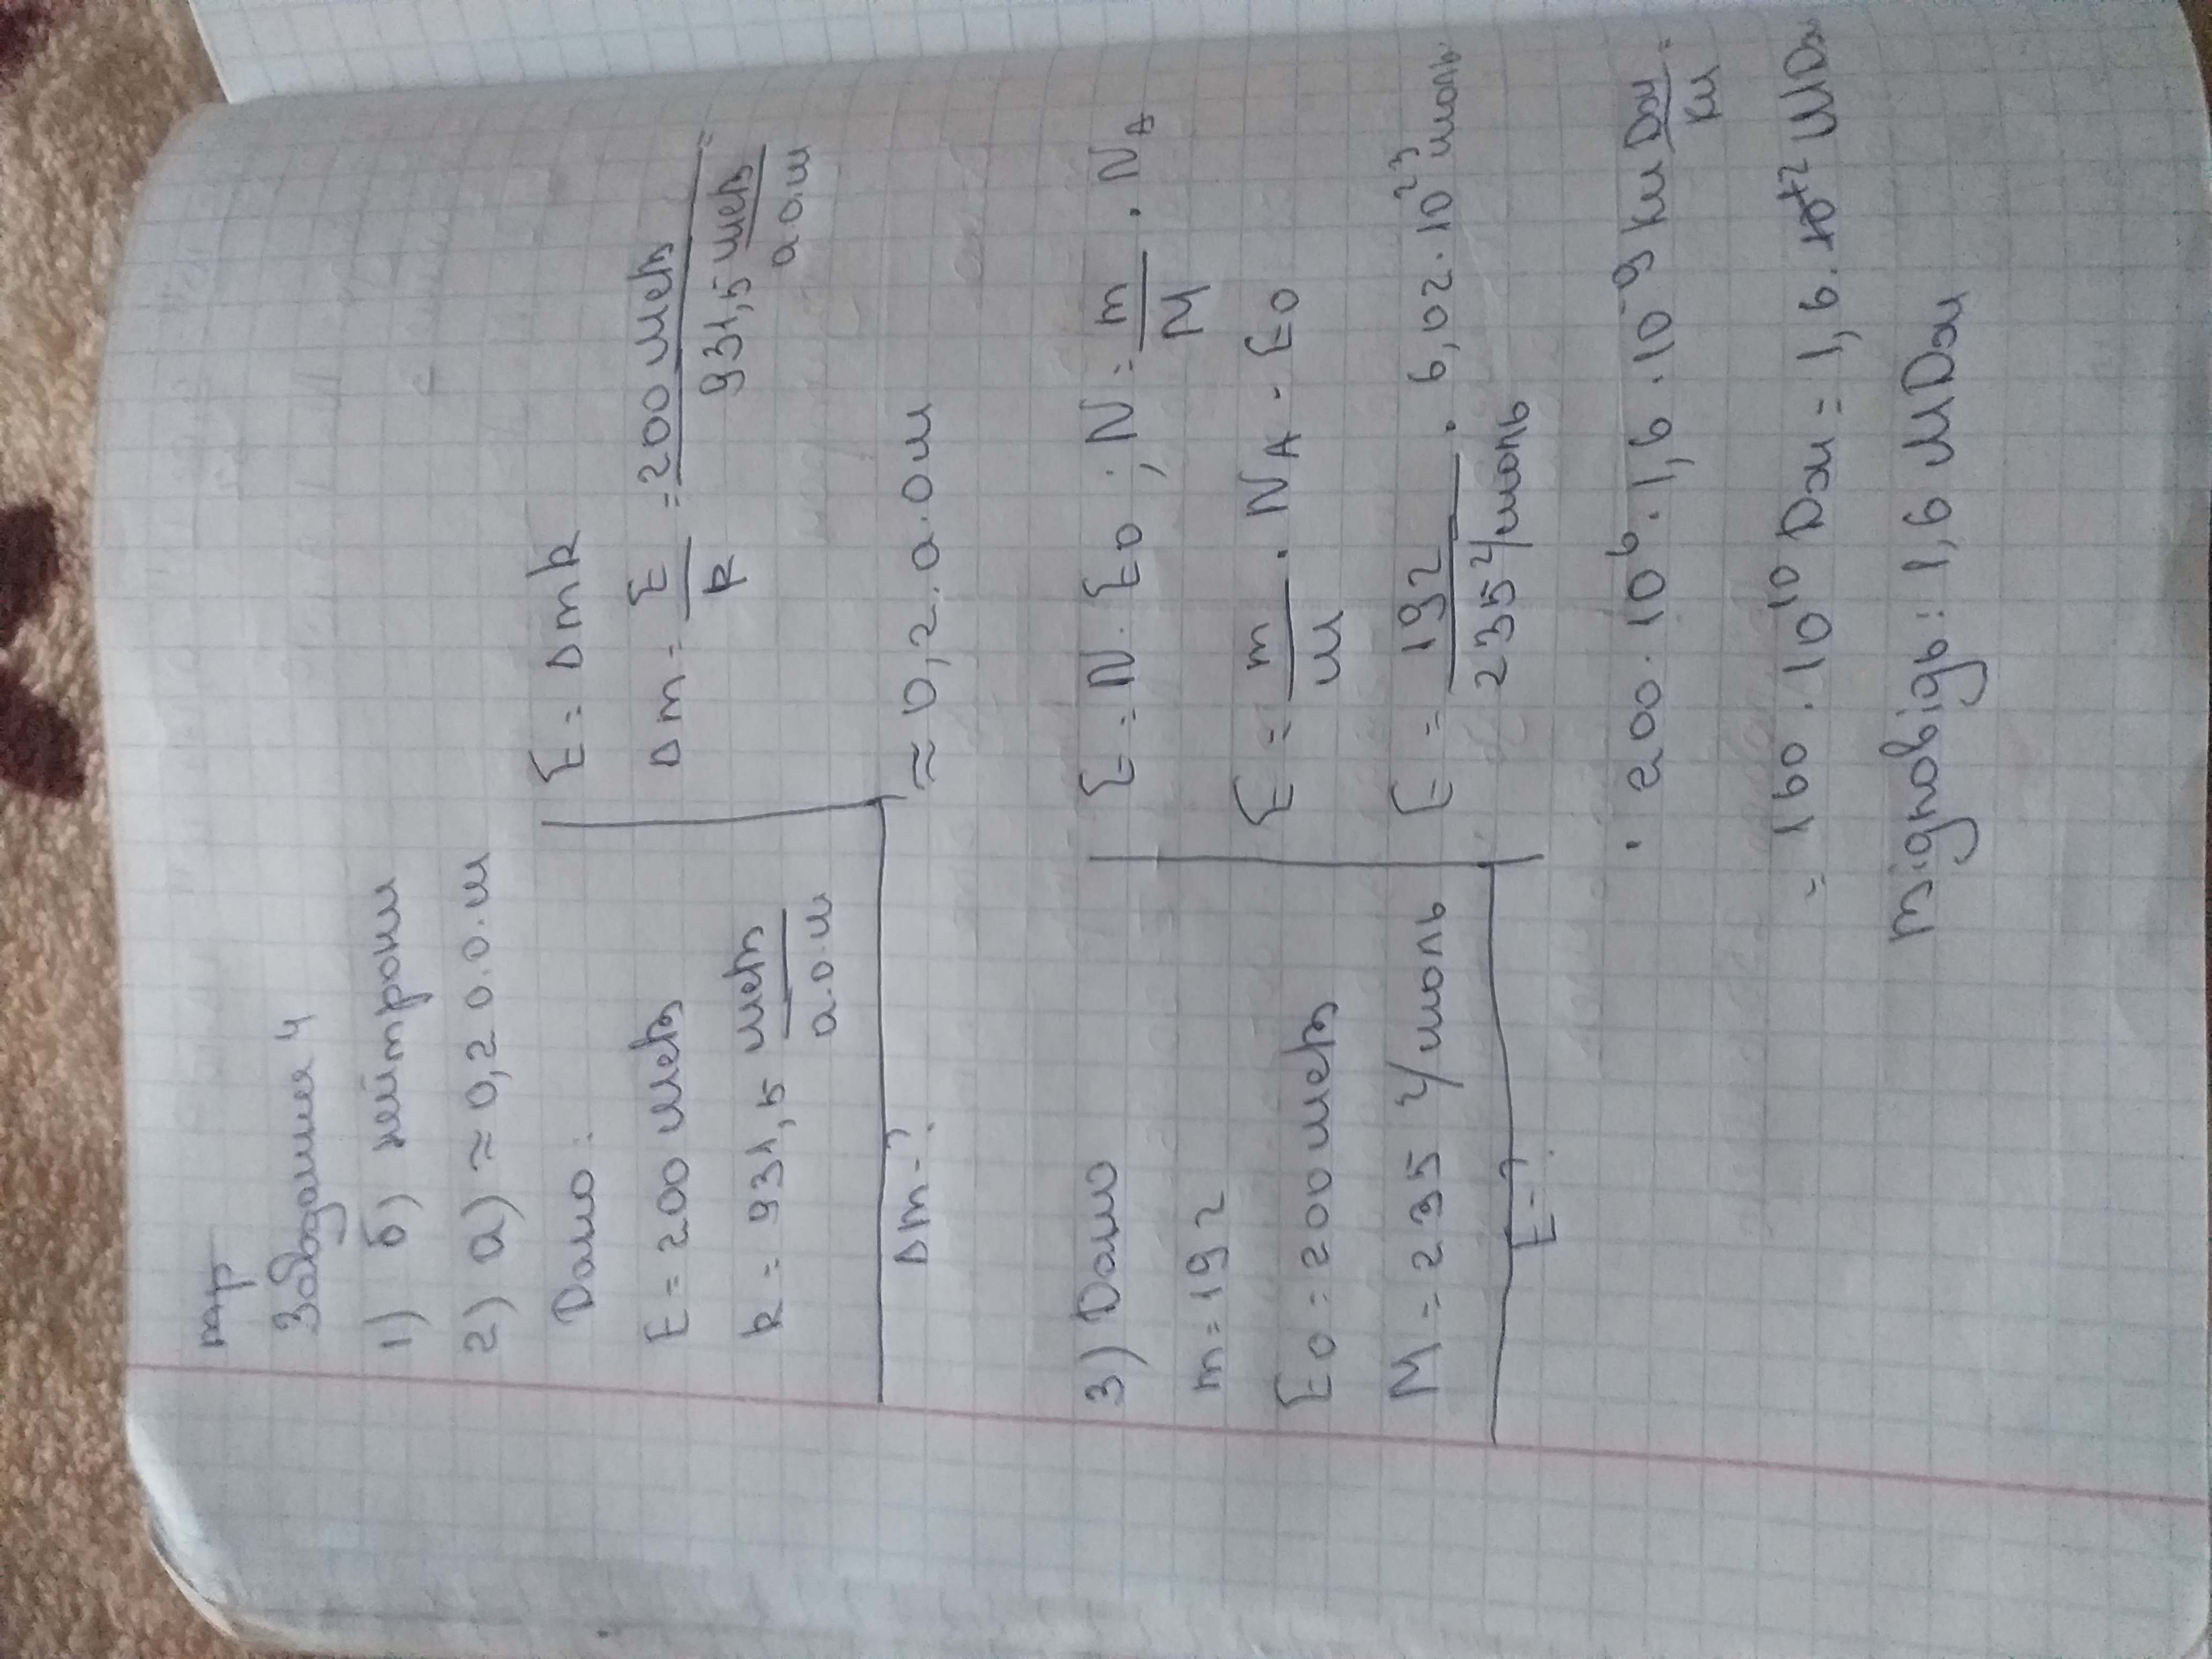 Завдання 4
1) б) нейтрони
2) а) ≈ 0,2 а.о.м
Дано:
E = 200 меВ
k = 931,5 меВ/а.о.м
Dm-?
E = Dmk
Dm = E/k = 200 меВ / 931,5 меВ/а.о.м =
≈ 0,2 . а.о.м
3) Дано
m = 19 г
E0 = 200 меВ
M = 235 г/моль
E-?
E = N · E0 ; N = m/M · NA
E = m/м · NA · E0
E = 19г / 235 г/моль · 6,02 · 10²³ моль
· 200 · 10⁶ · 1,6 · 10⁻⁹ Кл Дж/Кл =
= 160 · 10¹⁰ Дж = 1,6 · МДж
Відповідь: 1,6 МДж